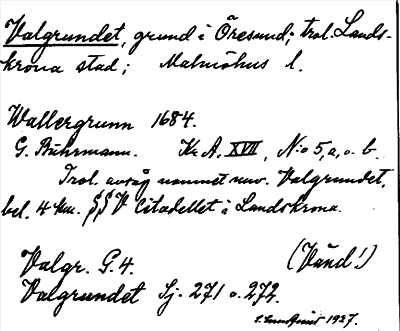 Valgrundet, grund i Öresund; trol. Lands-
krona stad; Malmöhus l.
Wallergrunn 1684.
G. Buhrmann. Kr. A. XVII, N:o 5, a, o. b.
Trol. avsåg namnet nuv. Valgrundet,
bel. 4 km. SSV Citadellet i Landskrona.
Valgr. G. 4. (Vänd!)
Valgrundet Sj. 271 o. 272.
1927.